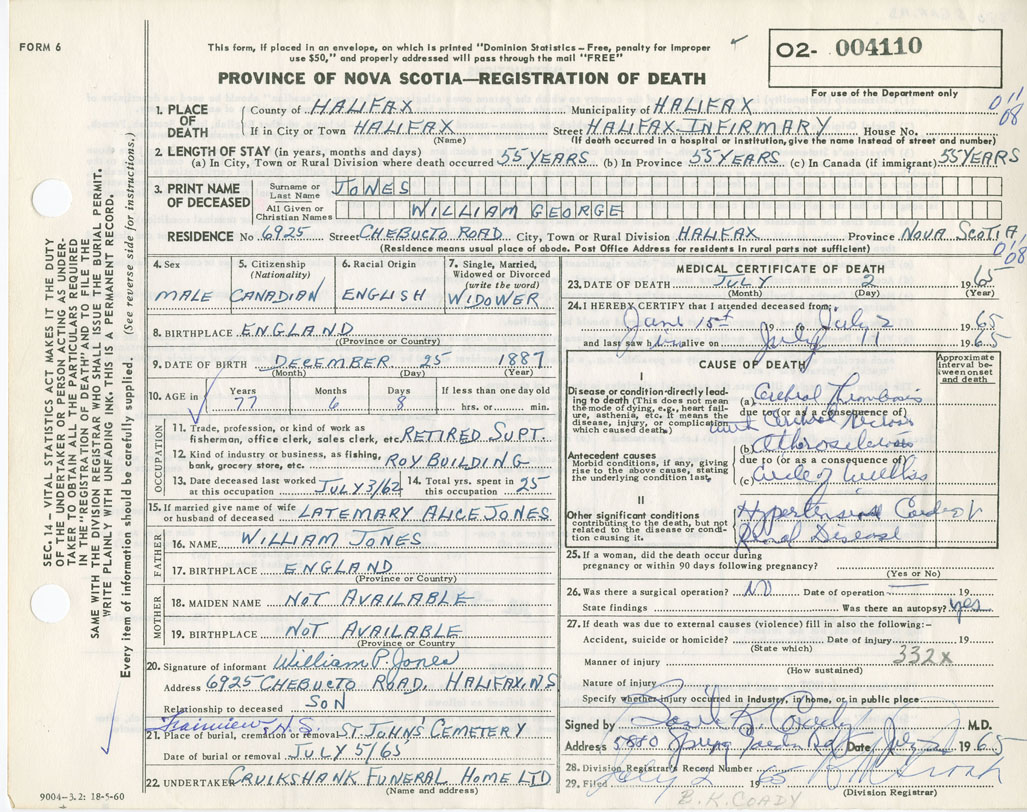 FORM 6
This form, if placed in an envelope, on which is printed "Dominion Statistics – Free, penalty for improper
use $50," and properly addressed will pass through the mail "FREE"
PROVINCE OF NOVA SCOTIA—REGISTRATION OF DEATH
02- 004110
For use of the Department only
011
08
1. PLACE OF DEATH
County of HALIFAX Municipality of HALIFAX
If in City or Town HALIFAX Street HALIFAX INFIRMARY House No.
(Name) (If death occurred in a hospital or institution, give the name instead of street and number)
2. LENGTH OF STAY (in years, months and days)
(a) In City, Town or Rural Division where death occurred 55 YEARS (b) In Province 55 YEARS (c) In Canada (if immigrant) 55 YEARS
3. PRINT NAME OF DECEASED
Surname or Last Name JONES
All Given or Christian Names WILLIAM GEORGE
RESIDENCE No 6925 Street CHEBUCTO ROAD City, Town or Rural Division HALIFAX Province NOVA SCOTIA
(Residence means usual place of abode. Post Office Address for residents in rural parts not sufficient)
011
08
4. Sex
MALE
5. Citizenship (Nationality)
CANADIAN
6. Racial Origin
ENGLISH
7. Single, Married, Widowed or Divorced (write the word)
WIDOWER
8. BIRTHPLACE ENGLAND
(Province or Country)
9. DATE OF BIRTH DECEMBER 25 1887
(Month) (Day) (Year)
10. AGE in Years 77 Months 6 Days 8 If less than one day old hrs. or min.
OCCUPATION
11. Trade, profession, or kind of work as
fisherman, office clerk, sales clerk, etc. RETIRED SUPT.
12. Kind of industry or business, as fishing,
bank, grocery store, etc. ROY BUILDING
13. Date deceased last worked at this occupation JULY 3/62 14. Total yrs. spent in this occupation 25
15. If married give name of wife
or husband of deceased LATE MARY ALICE JONES
FATHER
16. NAME WILLIAM JONES
17. BIRTHPLACE ENGLAND
(Province or Country)
MOTHER
18. MAIDEN NAME NOT AVAILABLE
19. BIRTHPLACE NOT AVAILABLE
(Province or Country)
20. Signature of informant William P. Jones
Address 6925 CHEBUCTO ROAD, HALIFAX, NS
Relationship to deceased SON
Fairview, N.S.
21. Place of burial, cremation or removal ST JOHNS' CEMETERY
Date of burial or removal JULY 5/65
22. UNDERTAKER CRUIKSHANK FUNERAL HOME LTD
(Name and address)
MEDICAL CERTIFICATE OF DEATH
23. DATE OF DEATH JULY 2 1965
(Month) (Day) (Year)
24. I HEREBY CERTIFY that I attended deceased from:
June 15th 19 to July 2 1965
and last saw him alive on July 11 1965
CAUSE OF DEATH
Approximate interval between onset and death
I
Disease or condition directly leading to death (This does not mean the mode of dying, e.g., heart failure, asthenia, etc. It means the disease, injury, or complication which caused death.)
(a) Cerebral Thrombosis
due to (or as a consequence of)
with Cerebral Necrosis
(b) Atherosclerosis
Antecedent causes
Morbid conditions, if any, giving rise to the above cause, stating the underlying condition last.
due to (or as a consequence of)
(c) Circle of Willis
II
Other significant conditions
contributing to the death, but not related to the disease or condition causing it.
Hypertensive Cardio &
Renal Disease
25. If a woman, did the death occur during
pregnancy or within 90 days following pregnancy?
(Yes or No)
26. Was there a surgical operation? NO Date of operation 19
State findings Was there an autopsy? yes
27. If death was due to external causes (violence) fill in also the following:–
Accident, suicide or homicide? Date of injury 19
(State which)
332X
Manner of injury
(How sustained)
Nature of injury
Specify whether injury occurred in industry, in home, or in public place
Signed by Basil K. Coady M.D.
Address 5880 Spring Garden Rd Date July 1965
28. Division Registrar's Record Number
29. Filed July 2 1965
(Division Registrar)
B. K. COADY
SEC. 14 – VITAL STATISTICS ACT MAKES IT THE DUTY
OF THE UNDERTAKER OR PERSON ACTING AS UNDER-
TAKER TO OBTAIN ALL THE PARTICULARS REQUIRED
IN THE "REGISTRATION OF DEATH" AND TO FILE THE
SAME WITH THE DIVISION REGISTRAR WHO SHALL ISSUE THE BURIAL PERMIT.
WRITE PLAINLY WITH UNFADING INK. THIS IS A PERMANENT RECORD.
Every item of information should be carefully supplied. (See reverse side for instructions.)
9004–3.2: 18-5-60